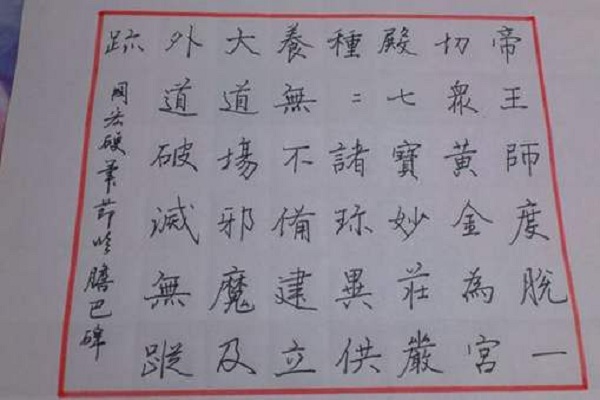 帝王師度脫一
切衆黃金為宮
殿七寶妙莊嚴
種二諸珎異供
養無不備建立
大道場邪魔及
外道破滅無蹤
跡
国法硬笔節临膽巴碑